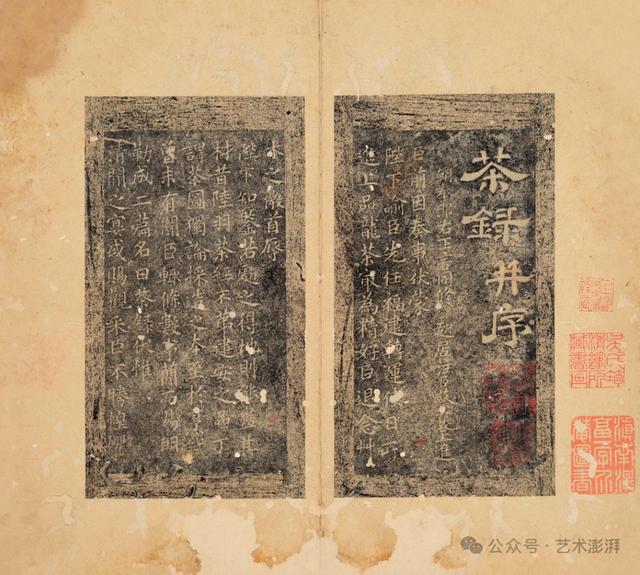 茶録并序
朝奉郎右正言同修起居注臣蔡襄上進
臣前因奏事伏蒙
陛下諭臣先任福建轉運使日所
進上品龍茶最為精好臣退念草
木之微首辱
陛下知鑒若處之得地則能盡其
材昔陸羽茶經不第建安之品丁
謂茶圖獨論採造之本至於烹試
曾未有聞臣輒條數事簡而易明
勒成二篇名曰茶録伏惟
清閒之宴或賜觀采臣不勝惶
公众号·艺术澎湃